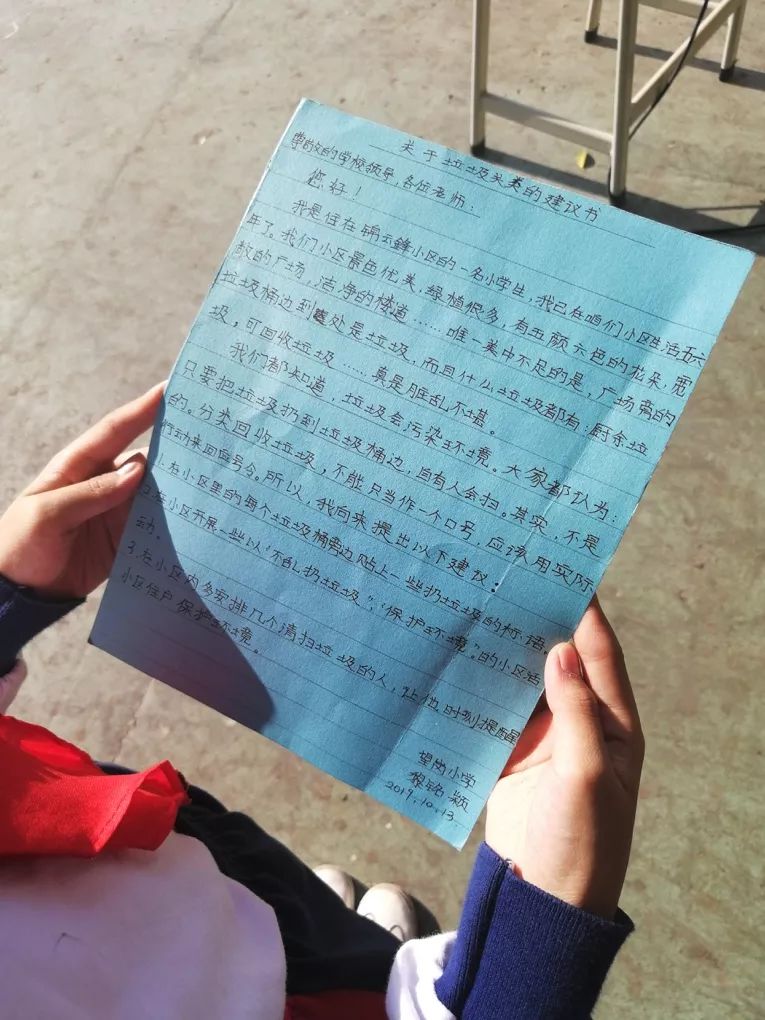 关于垃圾分类的建议书
尊敬的学校领导,各位老师:
您好!
我是住在锦云峰小区的一名小学生,我已在咱们小区生活五六
年了。我们小区景色优美,绿植很多,有五颜六色的花朵,宽
敞的广场,洁净的楼道……唯一美中不足的是,广场旁的
垃圾桶边到处是垃圾,而且什么垃圾都有:厨余垃
圾,可回收垃圾……真是脏乱不堪。
我们都知道,垃圾会污染环境。大家都认为:
只要把垃圾扔到垃圾桶边,自有人会扫。其实,不是
的。分类回收垃圾,不能只当作一个口号,应该用实际
行动来回应号令。所以,我向来提出以下建议:
1.在小区里的每个垃圾桶旁边贴上一些扔垃圾的标语。
2.在小区开展一些以“不乱扔垃圾”,“保护环境”的小区活
动。
3.在小区内多安排几个清扫垃圾的人,让他时刻提醒
小区住户保护环境。
望岗小学
黎铭颖
2019.10.13.